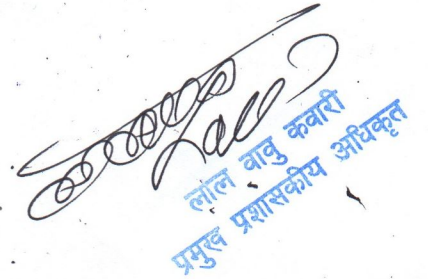 लाल वावु कवारी
प्रमुख प्रशासकीय अधिकृत